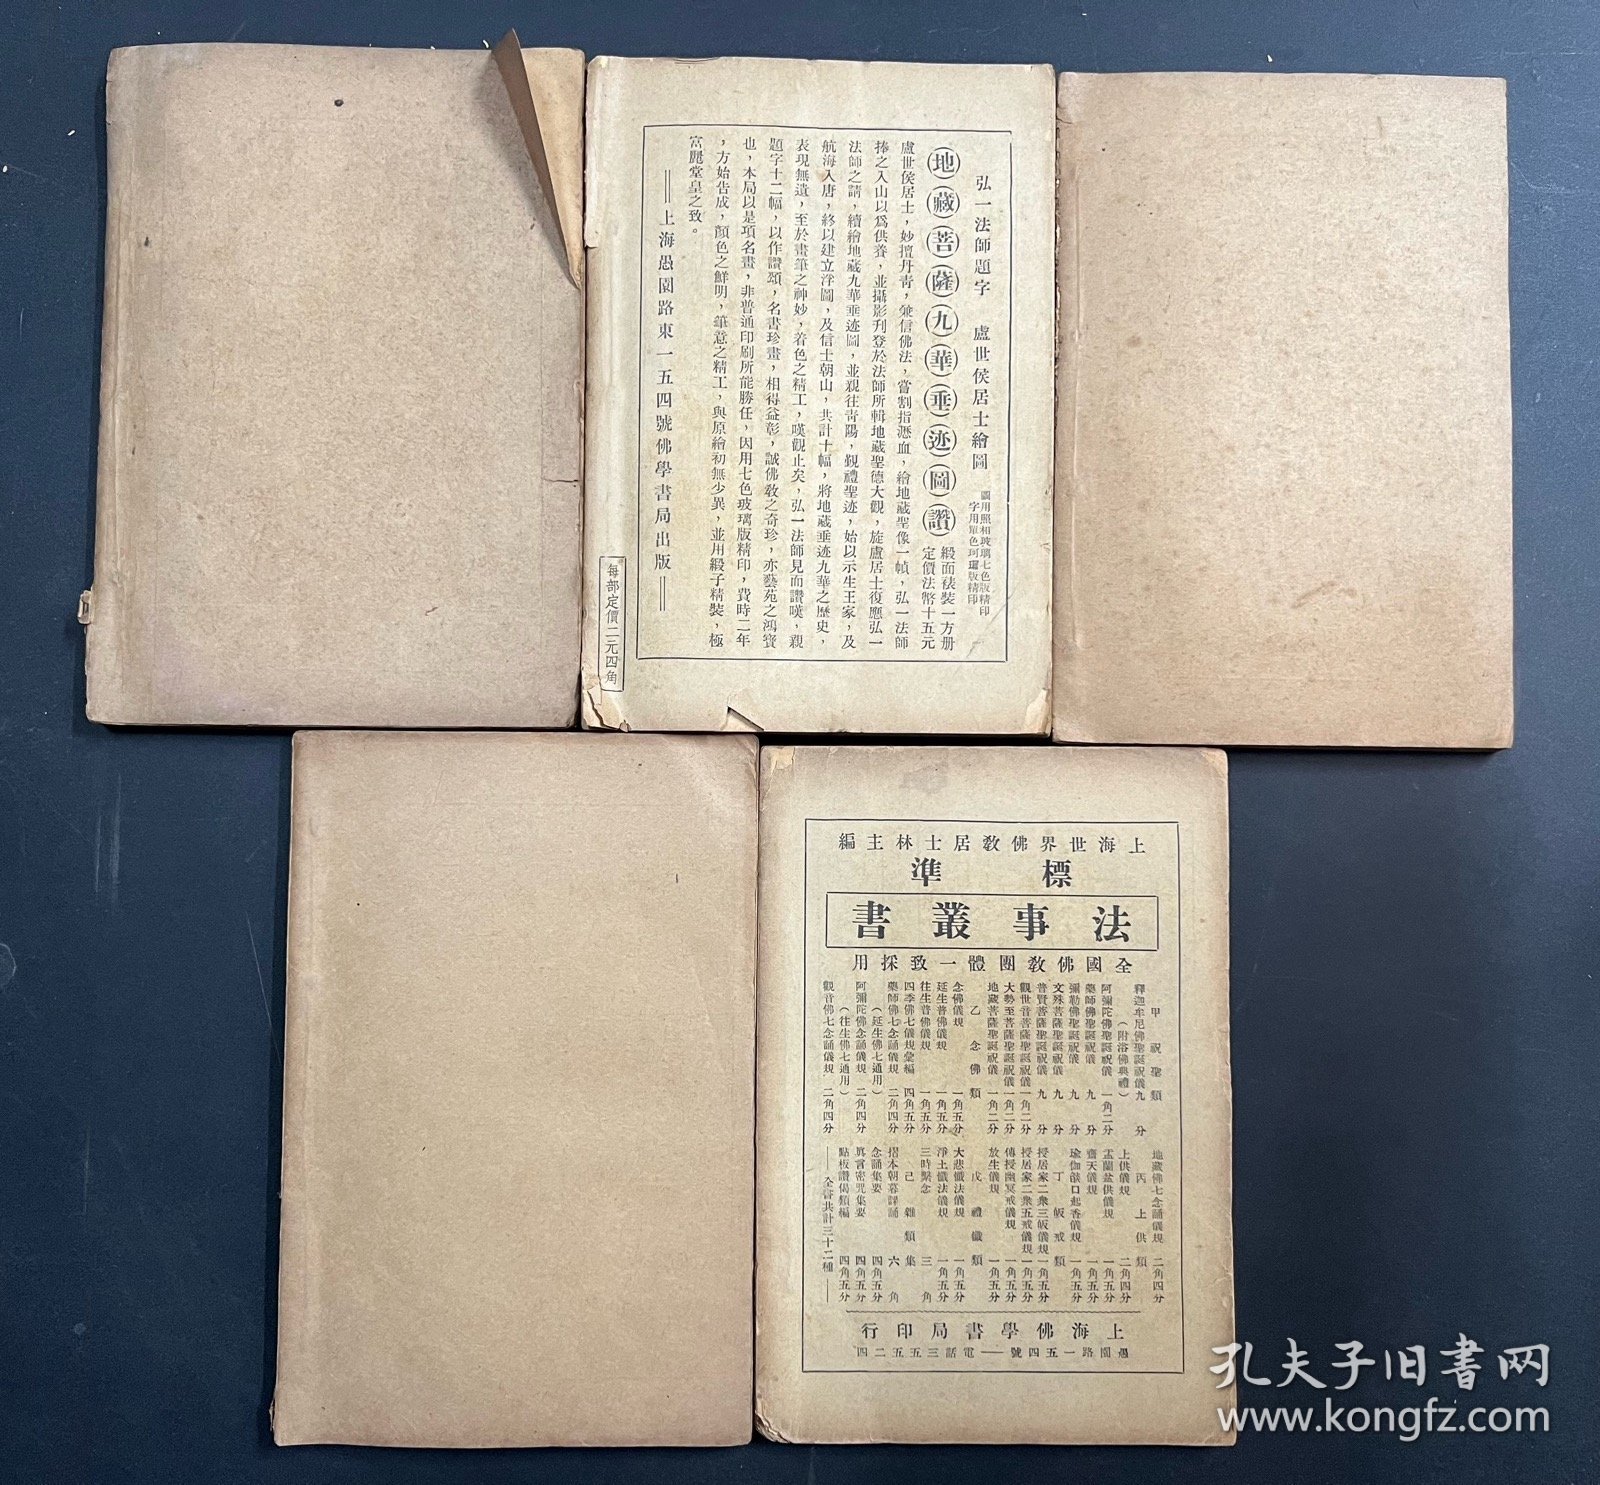 弘一法師題字　盧世侯居士繪圖
圖用照相玻璃七色版精印
字用單色珂瓏版精印
地藏菩薩九華垂迹圖讚
緞面裱裝一方册
定價法幣十五元
盧世侯居士，妙擅丹青，兼信佛法，嘗割指瀝血，繪地藏聖像一幀，弘一法師
捧之入山以爲供養，並攝影刋登於法師所輯地藏聖德大觀，旋盧居士復應弘一
法師之請，續繪地藏九華垂迹圖，並親往青陽，覲禮聖迹，始以示生王家，及
航海入唐，終以建立浮圖，及信士朝山，共計十幅，將地藏垂迹九華之歷史，
表現無遺，至於畫筆之神妙，着色之精工，嘆觀止矣，弘一法師見而讚嘆，親
題字十二幅，以作讚頌，名書珍畫，相得益彰，誠佛敎之奇珍，亦藝苑之鴻寶
也，本局以是項名畫，非普通印刷所能勝任，因用七色玻璃版精印，費時二年
，方始告成，顏色之鮮明，筆意之精工，與原繪初無少異，並用緞子精裝，極
富麗堂皇之致。
上海愚園路東一五四號佛學書局出版
每部定價二元四角
上海世界佛敎居士林主編
標準
法事叢書
全國佛敎團體一致採用
甲　祝聖類
釋迦牟尼佛聖誕祝儀　九分
（附浴佛典禮）
阿彌陀佛聖誕祝儀　一角二分
藥師佛聖誕祝儀　九分
彌勒佛聖誕祝儀　九分
文殊菩薩聖誕祝儀　九分
普賢菩薩聖誕祝儀　九分
觀世音菩薩聖誕祝儀　一角二分
大勢至菩薩聖誕祝儀　一角二分
地藏菩薩聖誕祝儀　一角二分
乙　念佛類
念佛儀規　一角五分
延生普佛儀規　一角五分
往生普佛儀規　一角五分
四季佛七儀規彙編　四角五分
藥師佛七念誦儀規　二角四分
（延生佛七通用）
阿彌陀佛念誦儀規　二角四分
（往生佛七通用）
觀音佛七念誦儀規　二角四分
地藏佛七念誦儀規　二角四分
丙　上供類
上供儀規　二角四分
盂蘭盆供儀規　一角五分
齋天儀規　一角五分
瑜伽燄口起香儀規　一角五分
丁　皈戒類
授居家二衆三皈儀規　一角五分
授居家二衆五戒儀規　一角五分
傳授幽冥戒儀規　一角五分
放生儀規　一角五分
戊　禮懺類
大悲懺法儀規　一角五分
淨土懺法儀規　一角五分
三時繫念　三角
己　雜類集
摺本朝暮課誦　六角
念誦集要　四角五分
眞言密咒集要　四角五分
點板讚偈類編　四角五分
全書共計三十二種
上海佛學書局印行
愚園路一五四號——電話三五五二四
孔夫子旧书网
www.kongfz.com